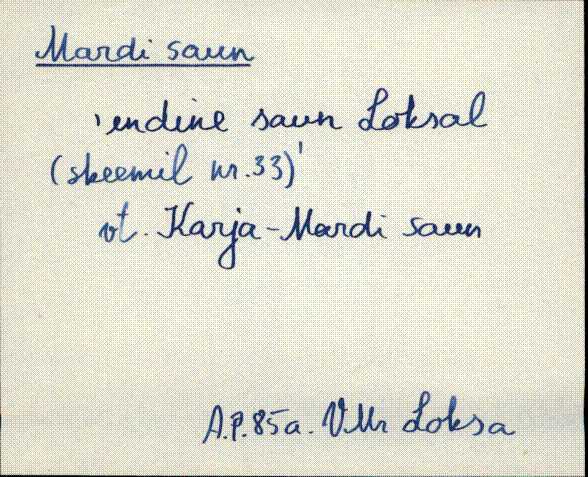 Mardi saun
'endine saun Loksal
(skeemil nr. 33)'
vt. Karja-Mardi saun
A.P. 85a. VMr Loksa